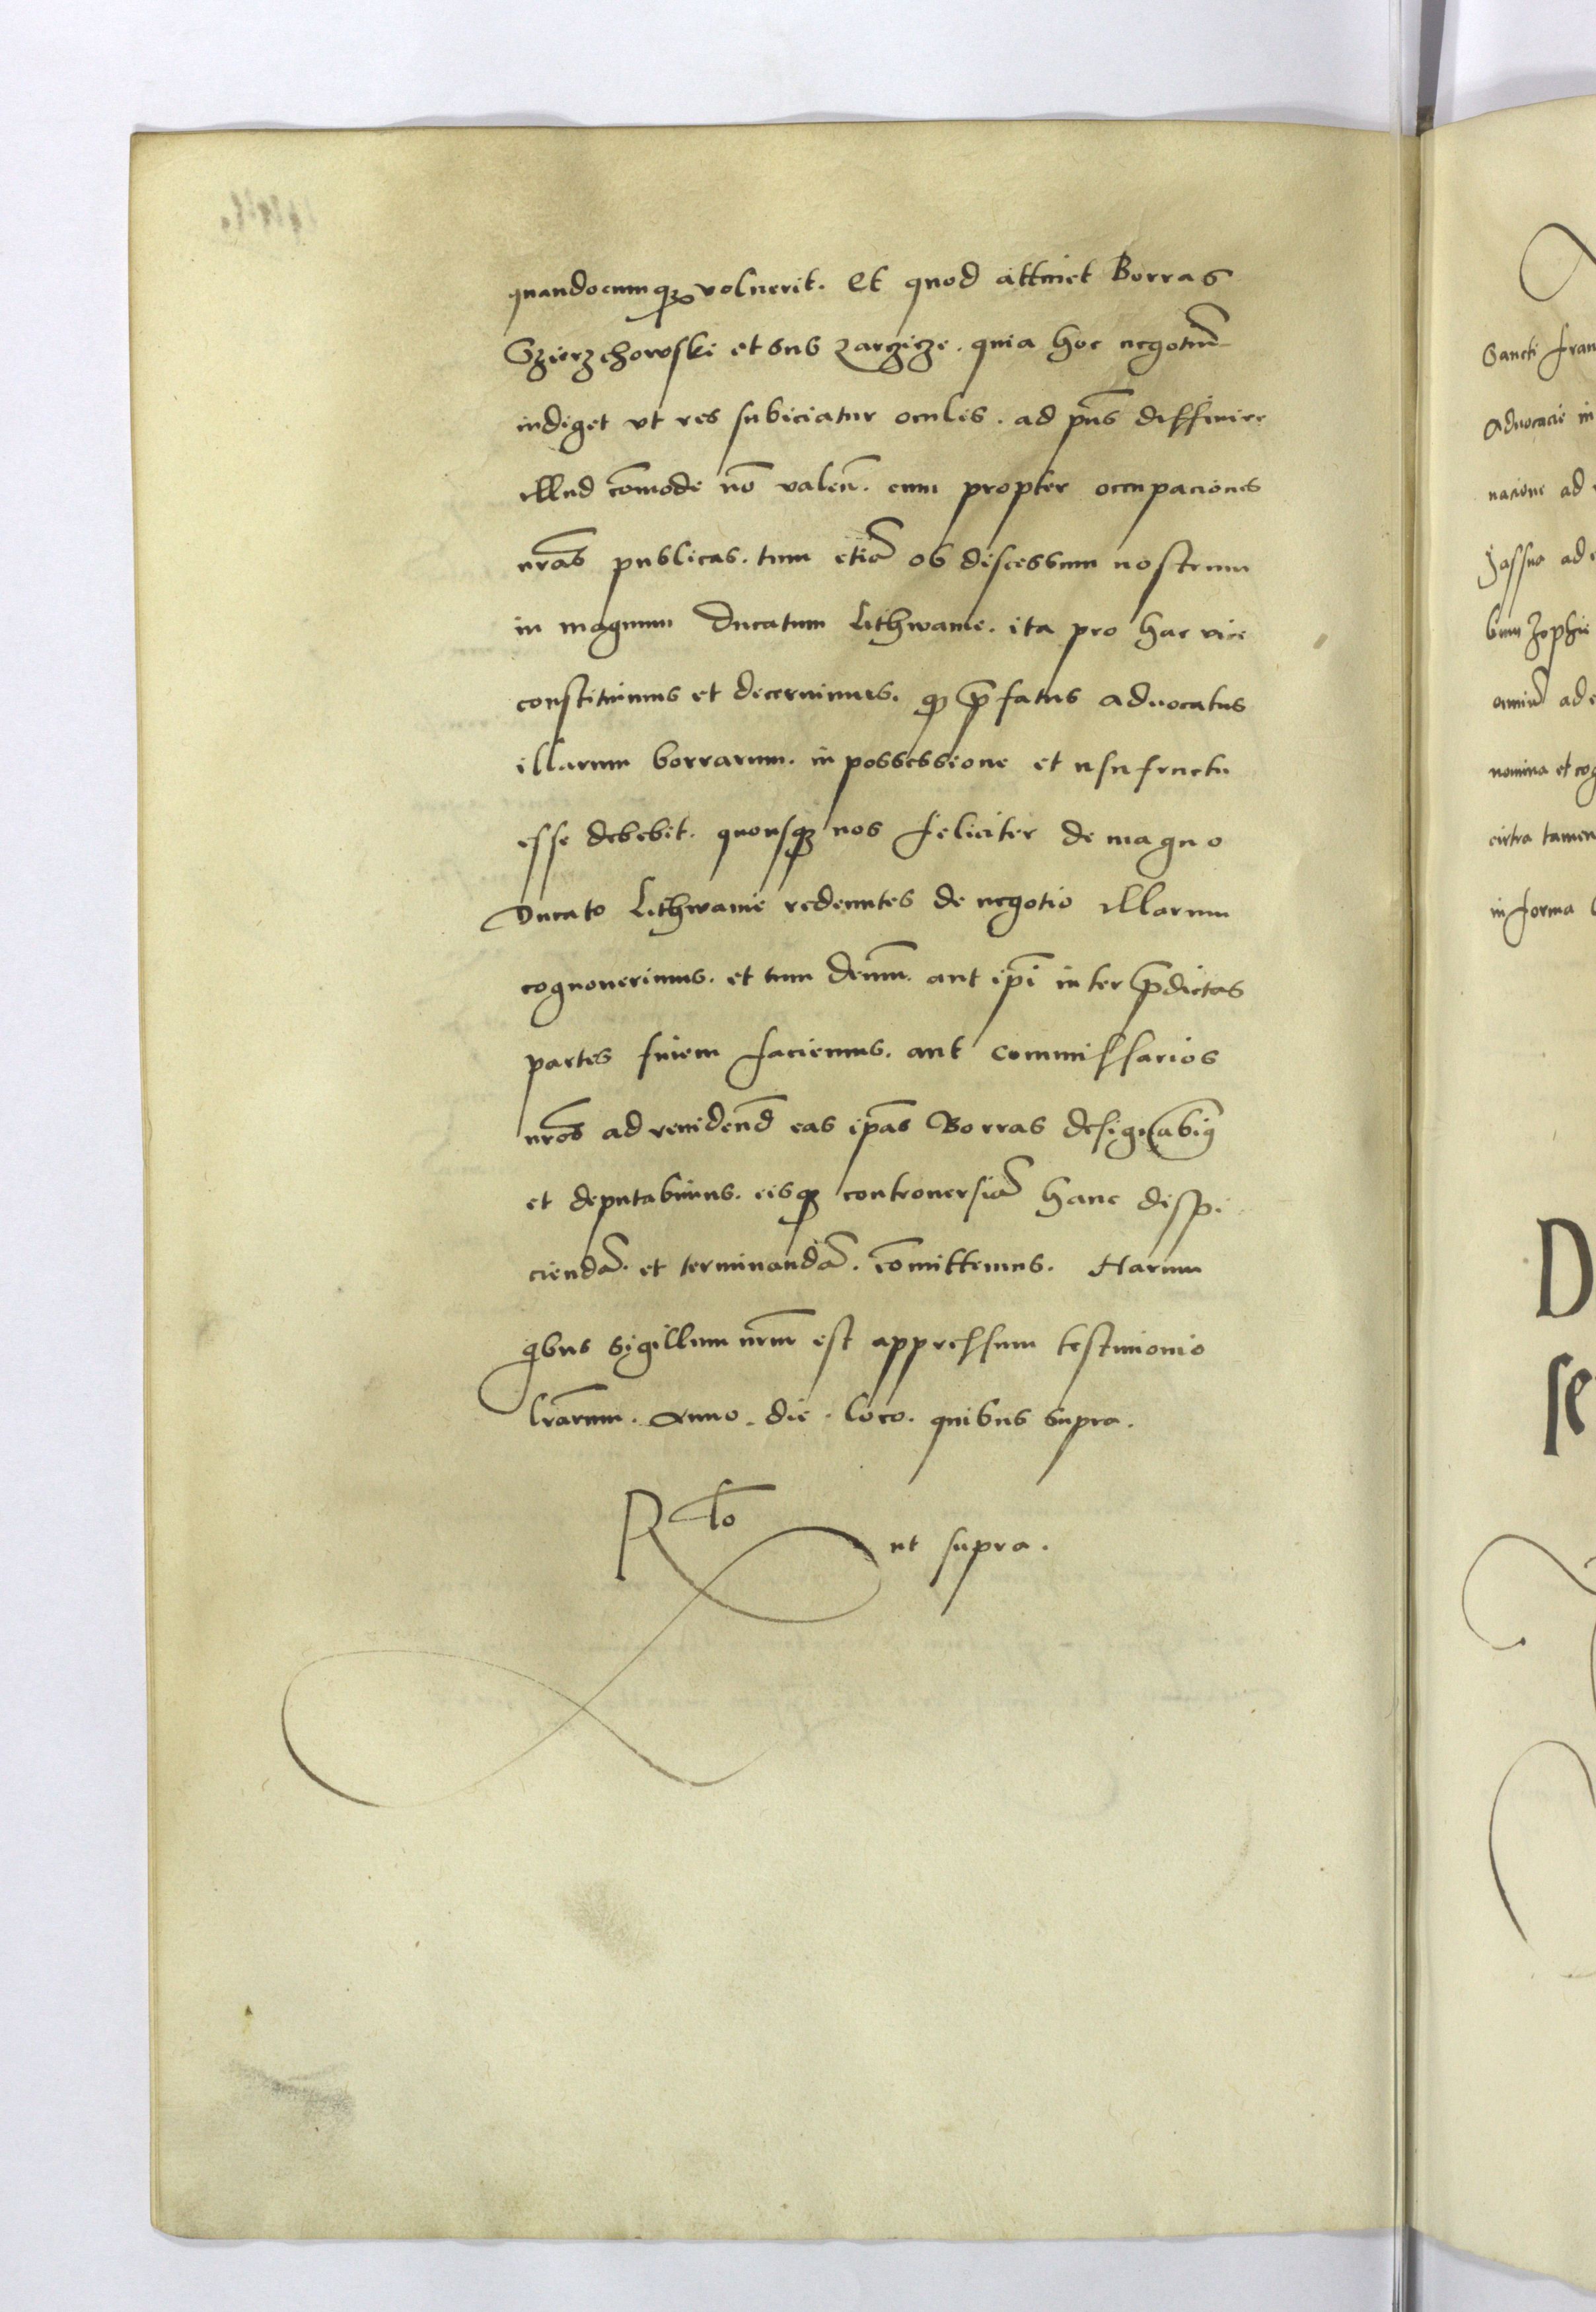 quandocumqꝫ voluerit. Et quod attinet Borras
Gzierzchowski et sub zarzicze. quia hoc negotiū
indiget vt res subiciatur oculis. ad pn̄s diffinire
illud cōmode nō valeū. cum propter occupaciones
nr̄as publicas. tum etiā ob discessum nostrum
in magnum Ducatum Lithwanie. ita pro hac vice
constituimus et decernimus. qꝫ p̄fatus aduocatus
illarum borrarum. in possessione et usufructu
esse debebit. quousqꝫ nos feliciter de magno
Ducato Lithwanie redeuntes de negotio illarum
cognouerimus. et tum demū. aut ip̄i inter p̄dictas
partes finem faciemus. aut commissarios
nr̄os ad reuidend̄ eas ip̄as Borras designabimꝰ
et deputabimus. eisqꝫ controuersiā hanc dispi
ciendā. et terminandā. cōmittemus. Harum
qibus sigillum nrm̄ est appressum testimonio
lr̄arum. Anno. die. loco. quibus supra.
Rlō ut supra.
Sancti Fran
Aduocacie in
nacione ad
Jassno ad
bum Zophie
omiū ad
nomina et cog
citra tamen
in forma
D
se